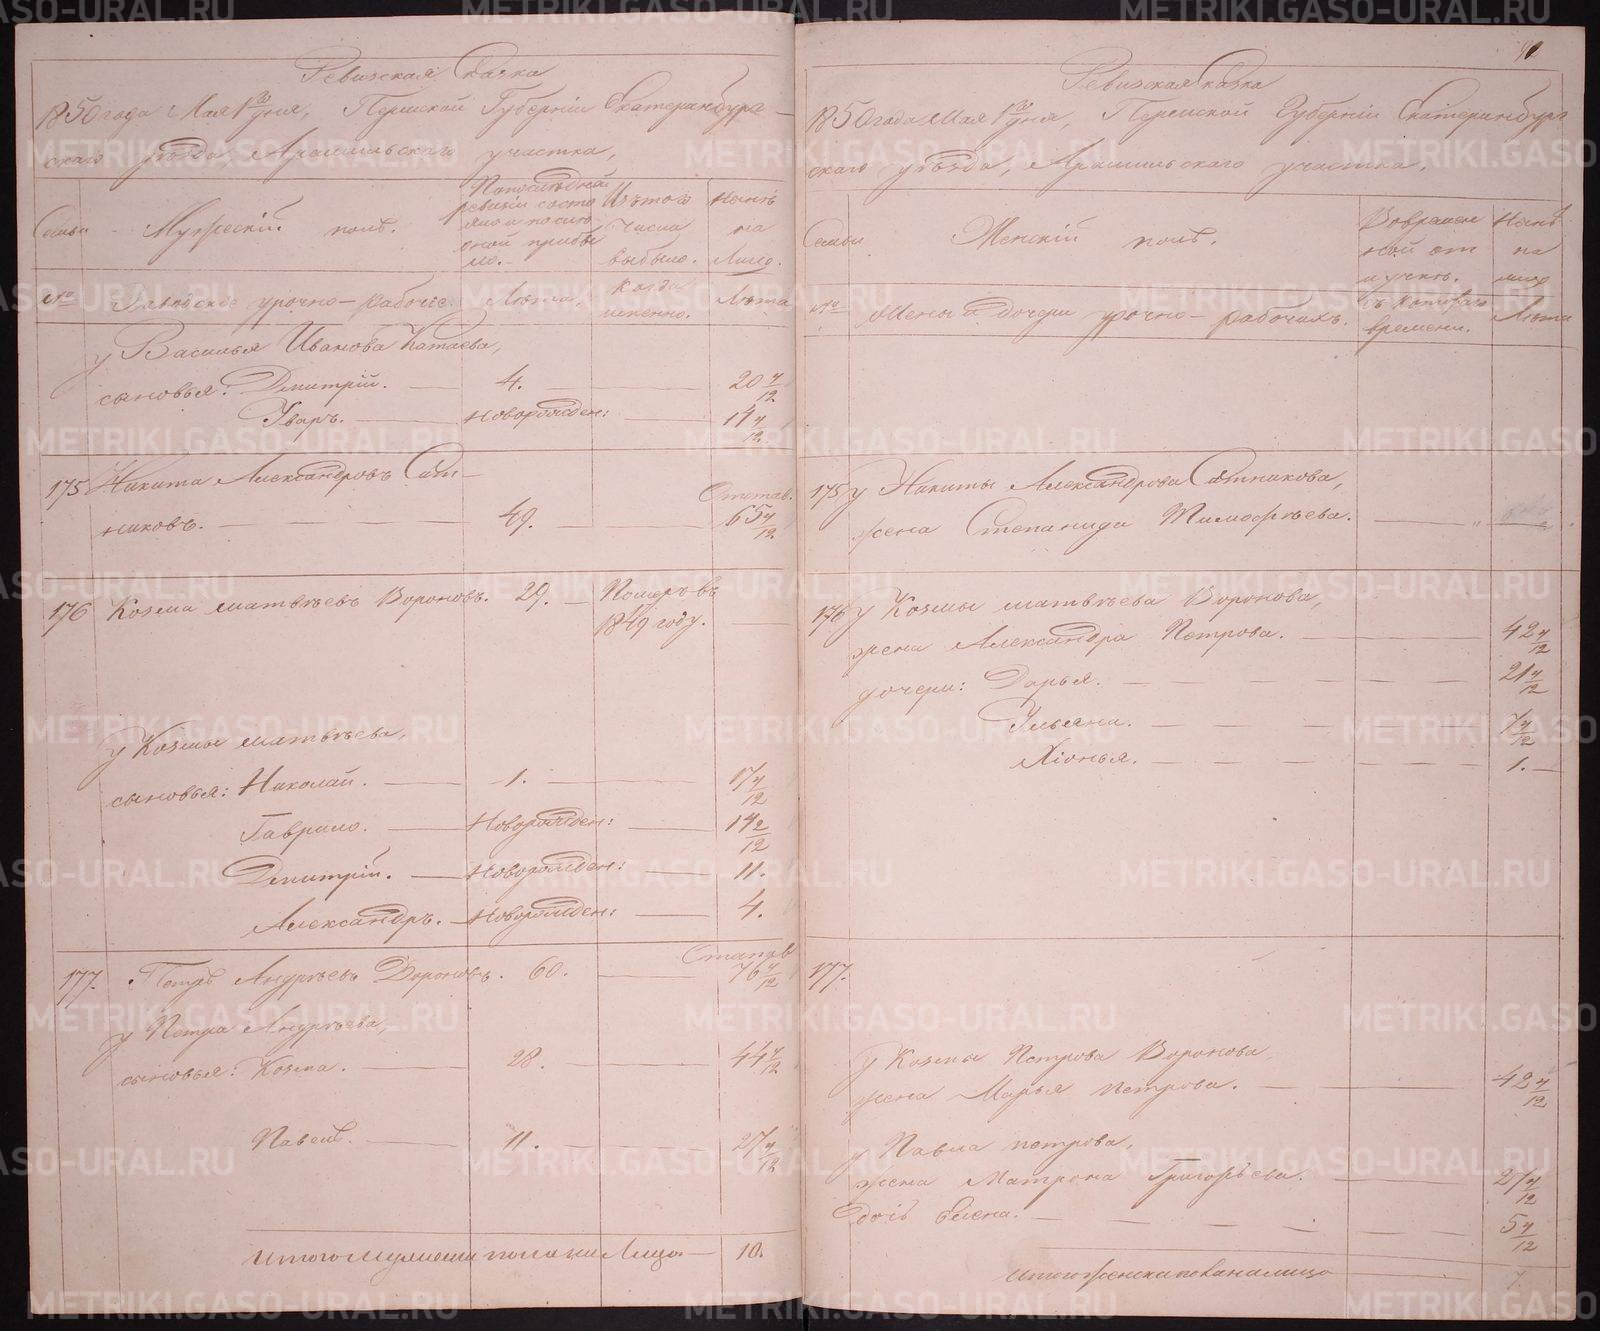 Ревизская Сказка
1850 года Мая 1го дня, Пермской Губернiи Екатеринбург-
скаго уѣзда, Арамильскаго участка,
Семьи
Мужескiй полъ.
По послѣдней ревизiи состояло и после оной прибыло.
Изъ того числа выбыло.
Нынѣ на лицо.
№
Заводскiе урочно-рабочiе.
Лѣта.
Когда именно.
Лѣта
у Василья Иванова Катаева,
сыновья: Дмитрiй. 4. 20 4/12
Уваръ. Новорожден: 14 4/12
175 Никита Александровъ Сит-
Отстав.
никовъ. 49. 65 4/12
176 Козма Матвѣевъ Вороновъ. 29. Померъ въ
1849 году.
у Козмы Матвѣева,
сыновья: Николай. 1. 17 4/12
Гаврило. Новорожден: 14 2/12
Дмитрiй. Новорожден: 11.
Александръ. Новорожден: 4.
177. Петръ Андрѣевъ Вороновъ. 60. 76 4/12
у Петра Андрѣева,
сыновья: Козма. 28. 44 4/12
Павелъ. 11. 27 4/12
Итого мужеска пола на Лицо 10.
Ревизская сказка
1850 года Мая 1го дня, Пермской Губернiи Екатеринбург
скаго уѣзда, Арамильскаго участка,
Семьи
Женскiй полъ.
Во временной отлучкѣ.
Нынѣ на лицо
№
Жены и дочери урочно-рабочихъ.
Съ котораго времени.
Лѣта
175 у Никиты Александрова Ситникова,
жена Степанида Тимофѣева.
176 у Козмы Матвѣева Воронова,
жена Александра Петрова. 42 4/12
дочери: Дарья. 21 4/12
Ульяна. 7 4/12
Хiонья. 1.
177.
у Козмы Петрова Воронова
жена Марья Петрова. 42 4/12
у Павла Петрова,
жена Матрона Григорьева. 27 4/12
дочь Елена. 5 4/12
Итого женска пола на лицо 7.
METRIKI.GASO-URAL.RU